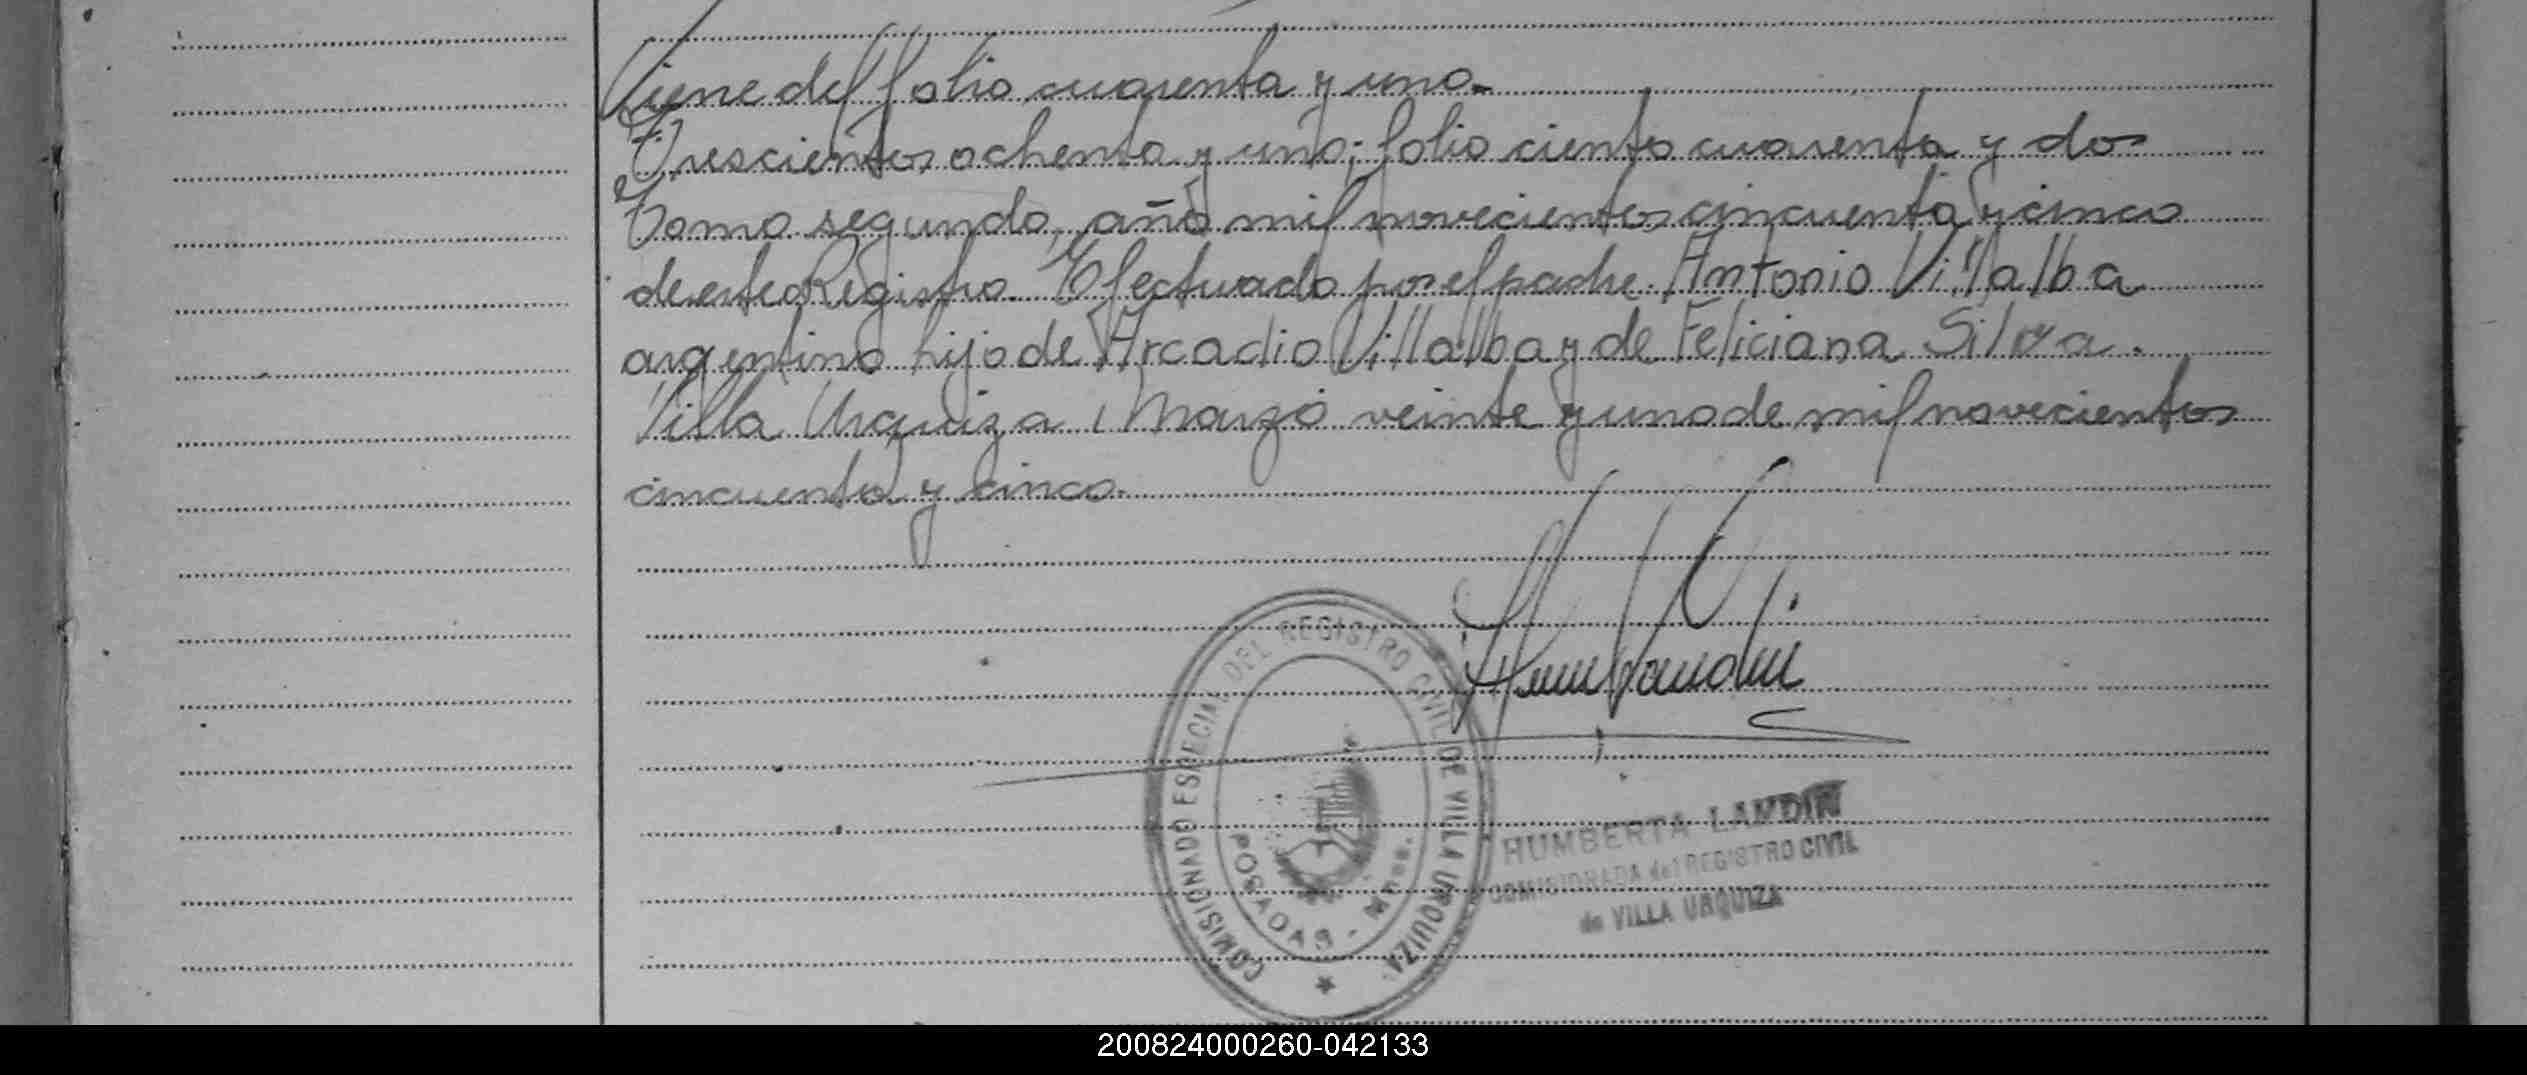 Viene del folio cuarenta y uno.
Trescientos ochenta y uno; folio ciento cuarenta y dos
Tomo segundo, año mil novecientos cincuenta y cinco
de este Registro. Efectuado por el padre. Antonio Villalba
argentino hijo de Arcadio Villalba y de Feliciana Silva.
Villa Urquiza, Marzo veinte y uno de mil novecientos
cincuenta y cinco.
COMISIONADO ESPECIAL DEL REGISTRO CIVIL DE VILLA URQUIZA.
POSADAS - Mnes.
HUMBERTA LANDIN
COMISIONADA del REGISTRO CIVIL
de VILLA URQUIZA
200824000260-042133